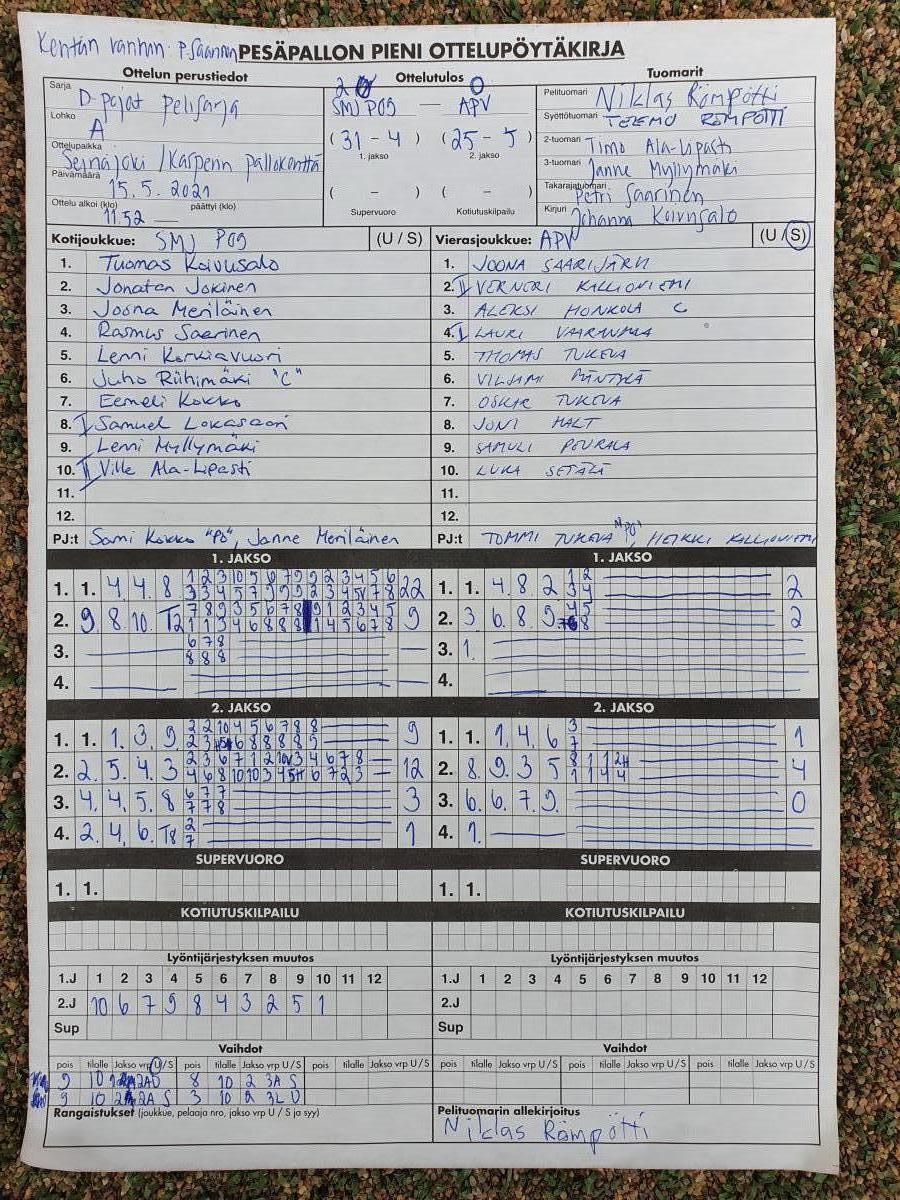 Kentän vanhin: P. Saarinen
PESÄPALLON PIENI OTTELUPÖYTÄKIRJA
Ottelun perustiedot
Ottelutulos
Tuomarit
Sarja D-pojat pelisarja
Lohko A
Ottelupaikka Seinäjoki / Kasperin pallokenttä
Päivämäärä 15.5.2021
Ottelu alkoi (klo) 11.52 päättyi (klo)
2 0
SMJ POJ — APV
( 31 - 4 ) ( 25 - 5 )
1. jakso 2. jakso
( - ) ( - )
Supervuoro Kotiutuskilpailu
Pelituomari Niklas Römpötti
Syöttötuomari TEEMU RÖMPÖTTI
2-tuomari Timo Ala-Lipasti
3-tuomari Janne Myllymäki
Takarajatuomari Petri Saarinen
Kirjuri Johanna Koivusalo
Kotijoukkue: SMJ POJ (U / S)
1. Tuomas Koivusalo
2. Jonatan Jokinen
3. Joona Meriläinen
4. Rasmus Saarinen
5. Lenni Korkiavuori
6. Juho Riihimäki "C"
7. Eemeli Kokko
8. I Samuel Lokasaari
9. Lenni Myllymäki
10. II Ville Ala-Lipasti
11.
12.
PJ:t Sami Kokko "PJ", Janne Meriläinen
Vierasjoukkue: APV (U / S)
1. JOONA SAARIJÄRVI
2. II VERNERI KALLIONIEMI
3. ALEKSI HONKOLA C
4. I LAURI
5. THOMAS TUKEVA
6. VILJAMI MÄNTYLÄ
7. OSKAR TUKEVA
8. JONI HALT
9. SAMULI PEURALA
10. LUKA SETÄLÄ
11.
12.
PJ:t TOMMI TUKEVA "PJ", HEIKKI KALLIONIEMI
1. JAKSO
1. 1. 4 4 8 22
2. 9 8 10 T2 9
3. 6 7 8
8 8 8
4.
1. JAKSO
1. 1. 4. 8. 2 1 2 2
3 4
2. 3 6. 8. 9. 2
3. 1.
4.
2. JAKSO
1. 1. 1. 3. 9 9
2. 2. 5. 4. 3 12
3. 4. 4. 5. 8 6 7 7 3
7 7 8
4. 2. 4. 6. T8 2 1
7
2. JAKSO
1. 1. 1. 4. 6 3 1
7
2. 8. 9. 3 5 4
3. 6. 6. 7. 9. 0
4. 1.
SUPERVUORO
1. 1.
SUPERVUORO
1. 1.
KOTIUTUSKILPAILU
KOTIUTUSKILPAILU
Lyöntijärjestyksen muutos
1.J 1 2 3 4 5 6 7 8 9 10 11 12
2.J 10 6 7 9 8 4 3 2 5 1
Sup
Lyöntijärjestyksen muutos
1.J 1 2 3 4 5 6 7 8 9 10 11 12
2.J
Sup
Vaihdot
pois tilalle Jakso vrp U / S pois tilalle Jakso vrp U / S pois tilalle Jakso vrp U / S
9 10 8 10 2 3A S
9 10 2A S 3 10 2 3L U
Vaihdot
pois tilalle Jakso vrp U / S pois tilalle Jakso vrp U / S pois tilalle Jakso vrp U / S
Rangaistukset (joukkue, pelaaja nro, jakso vrp U / S ja syy)
Pelituomarin allekirjoitus
Niklas Römpötti